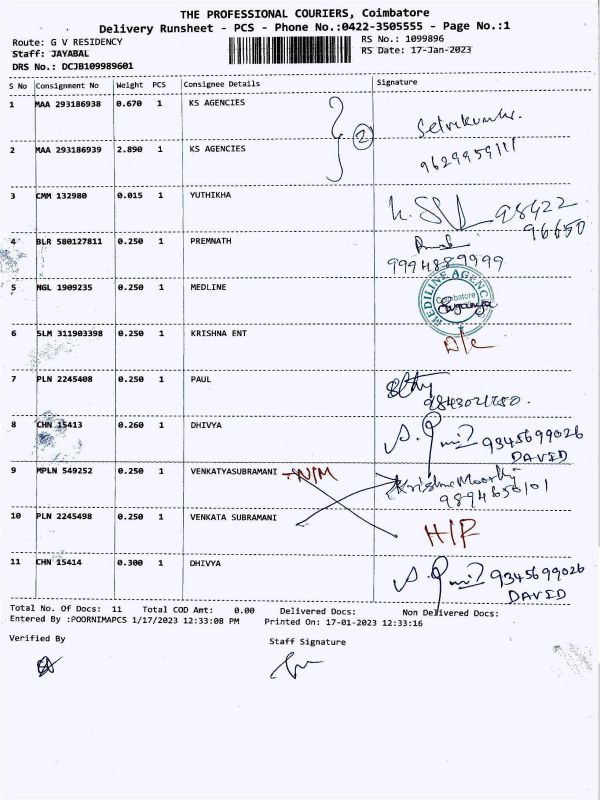 THE PROFESSIONAL COURIERS, Coimbatore
Delivery Runsheet - PCS - Phone No.:0422-3505555 - Page No.:1
Route: G V RESIDENCY
RS No.: 1099896
Staff: JAYABAL
RS Date: 17-Jan-2023
DRS No.: DCJB109989601
S No Consignment No Weight PCS Consignee Details Signature
1 MAA 293186938 0.670 1 KS AGENCIES
Selvakumar.
2
2 MAA 293186939 2.890 1 KS AGENCIES
9629959111
3 CMM 132980 0.015 1 YUTHIKHA
98422
96650
4 BLR 580127811 0.250 1 PREMNATH
9994889999
5 NGL 1909235 0.250 1 MEDLINE
MEDILINE AGENC
Coimbatore
6 SLM 311903398 0.250 1 KRISHNA ENT
D/c
7 PLN 2245408 0.250 1 PAUL
8 CHN 15413 0.260 1 DHIVYA
9345699026
DAVID
9 MPLN 549252 0.250 1 VENKATYASUBRAMANI N/M
Krishna Moorthy
9894650101
10 PLN 2245498 0.250 1 VENKATA SUBRAMANI
H/F
11 CHN 15414 0.300 1 DHIVYA
9345699026
DAVID
Total No. Of Docs: 11 Total COD Amt: 0.00 Delivered Docs: Non Delivered Docs:
Entered By :POORNIMAPCS 1/17/2023 12:33:08 PM Printed On: 17-01-2023 12:33:16
Verified By
Staff Signature